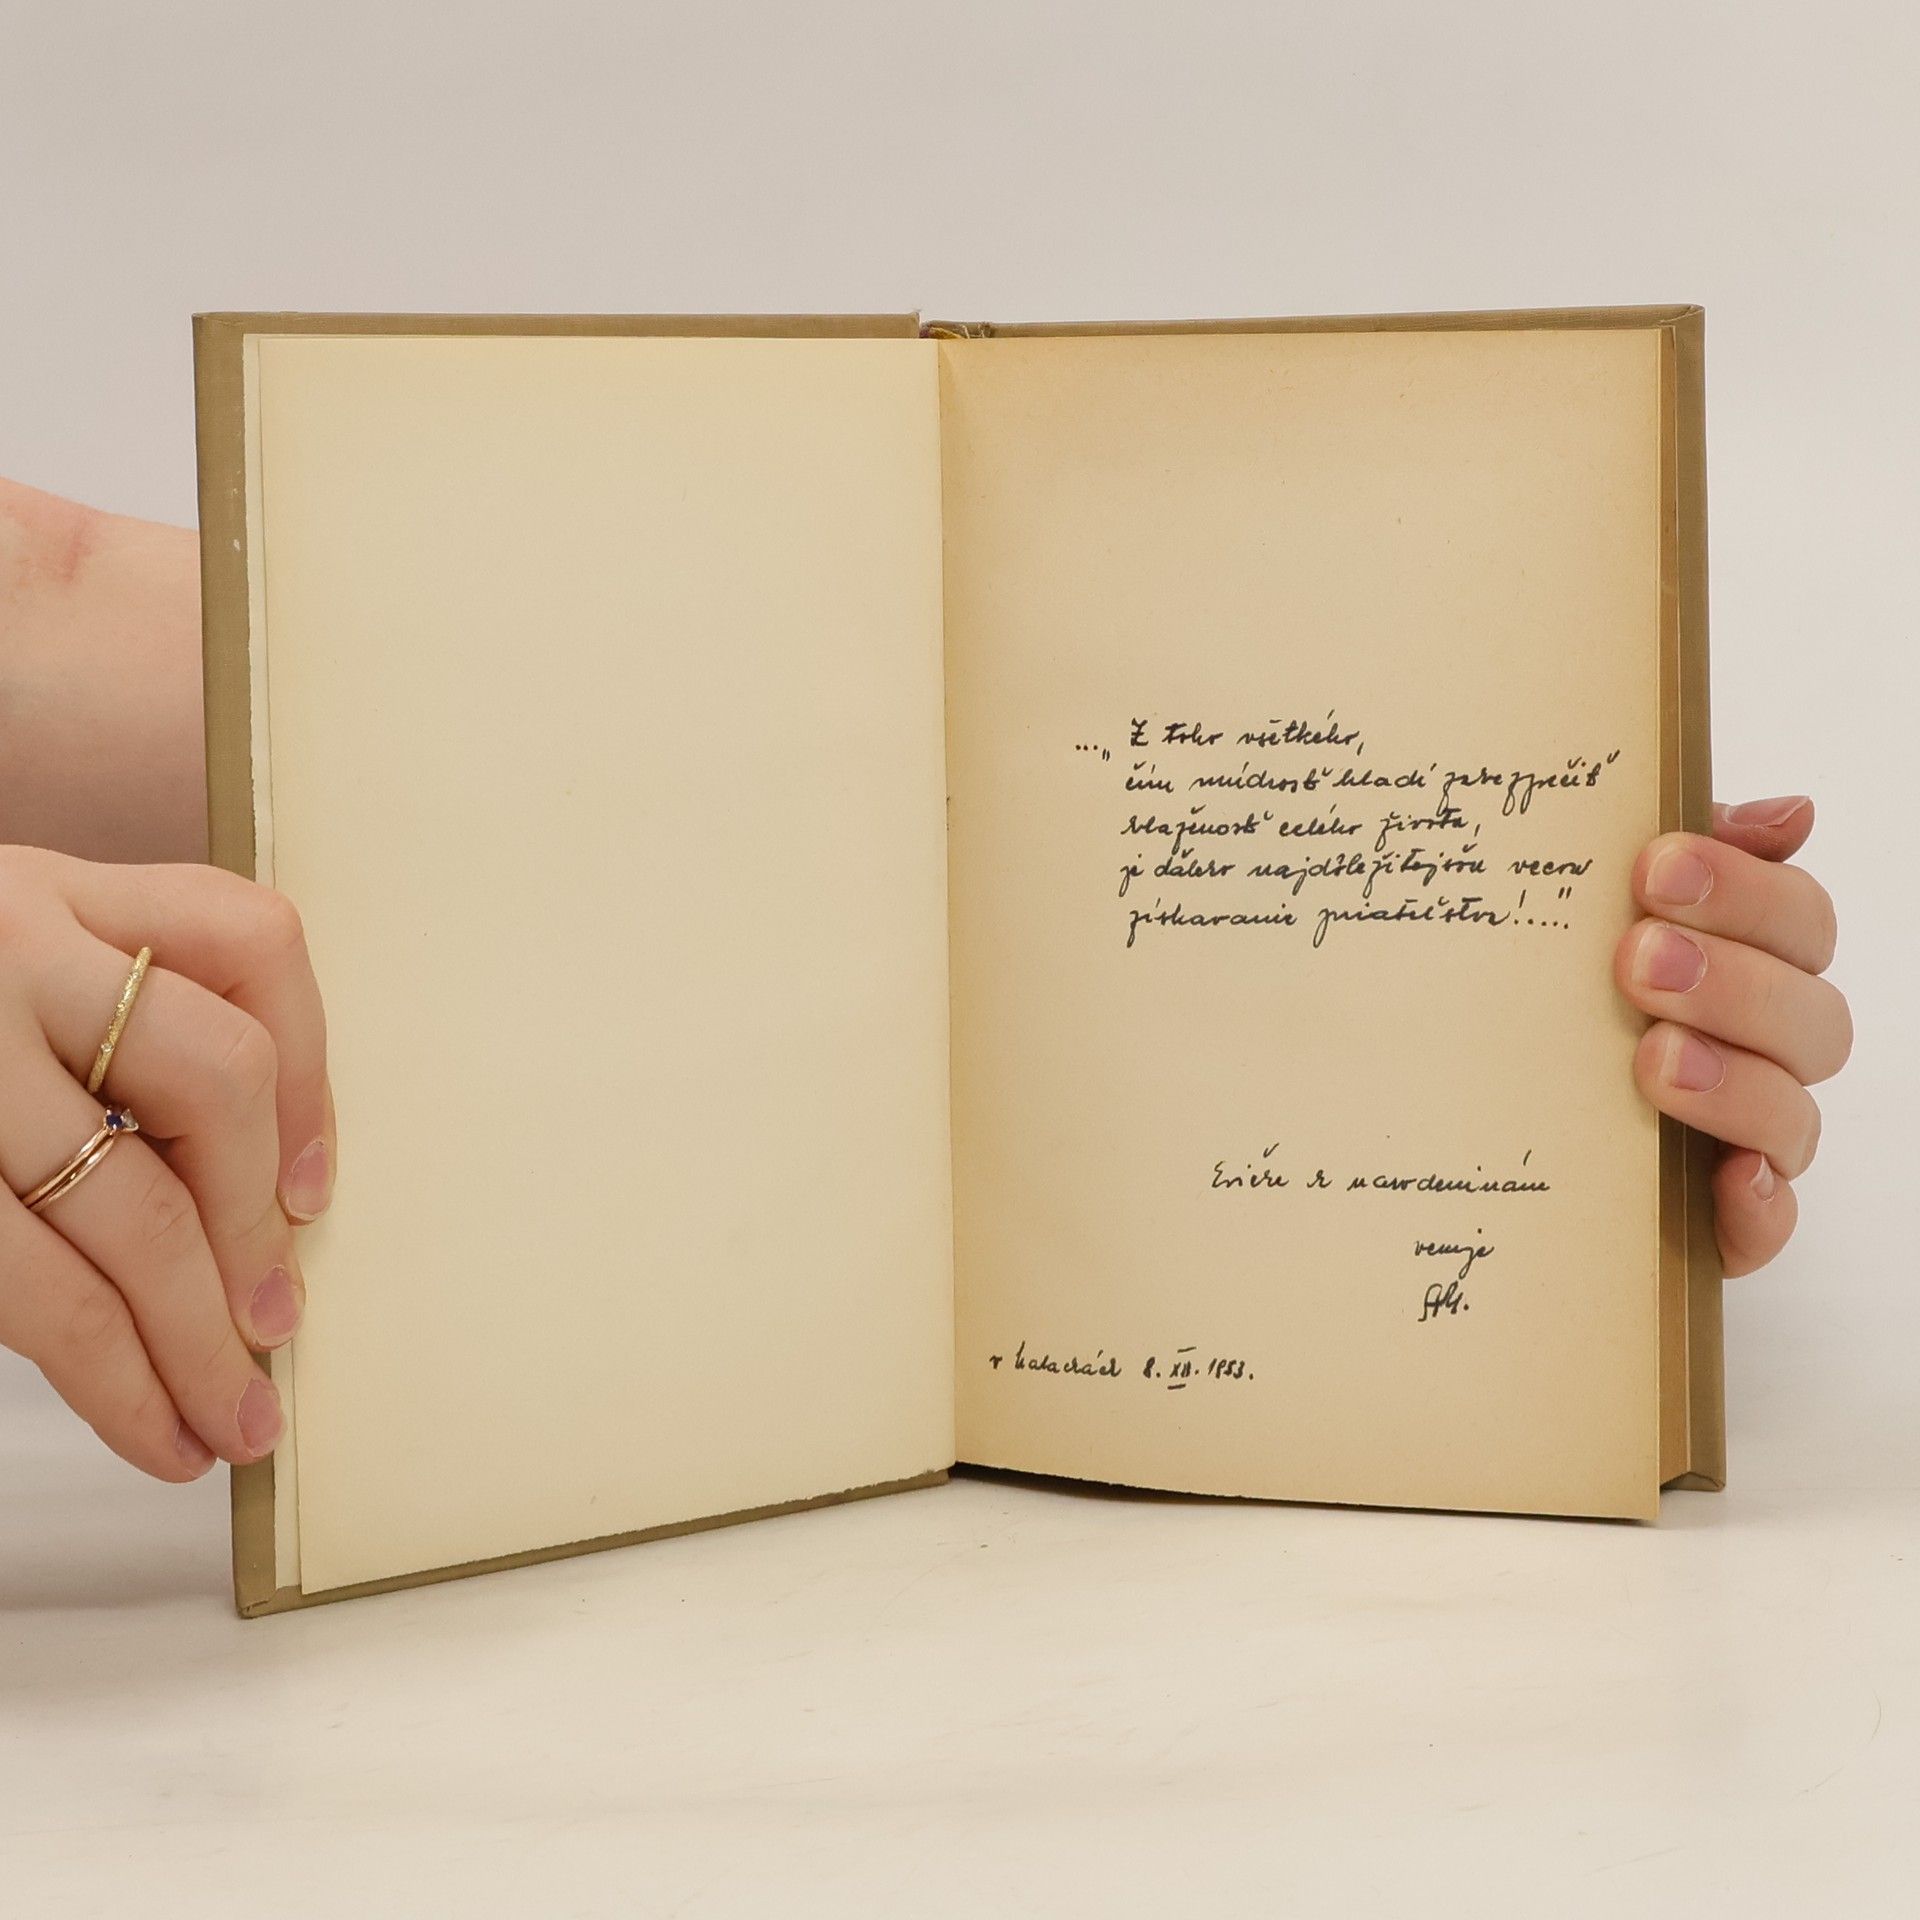 ..."Z toho všetkého,
čím múdrosť hladí zabezpečiť
blaženosť celého života,
je ďaleko najdôležitejšou vecou
získavanie priateľstva!...."
Evičke k narodeninám
venuje
v 8. XII. 1953.